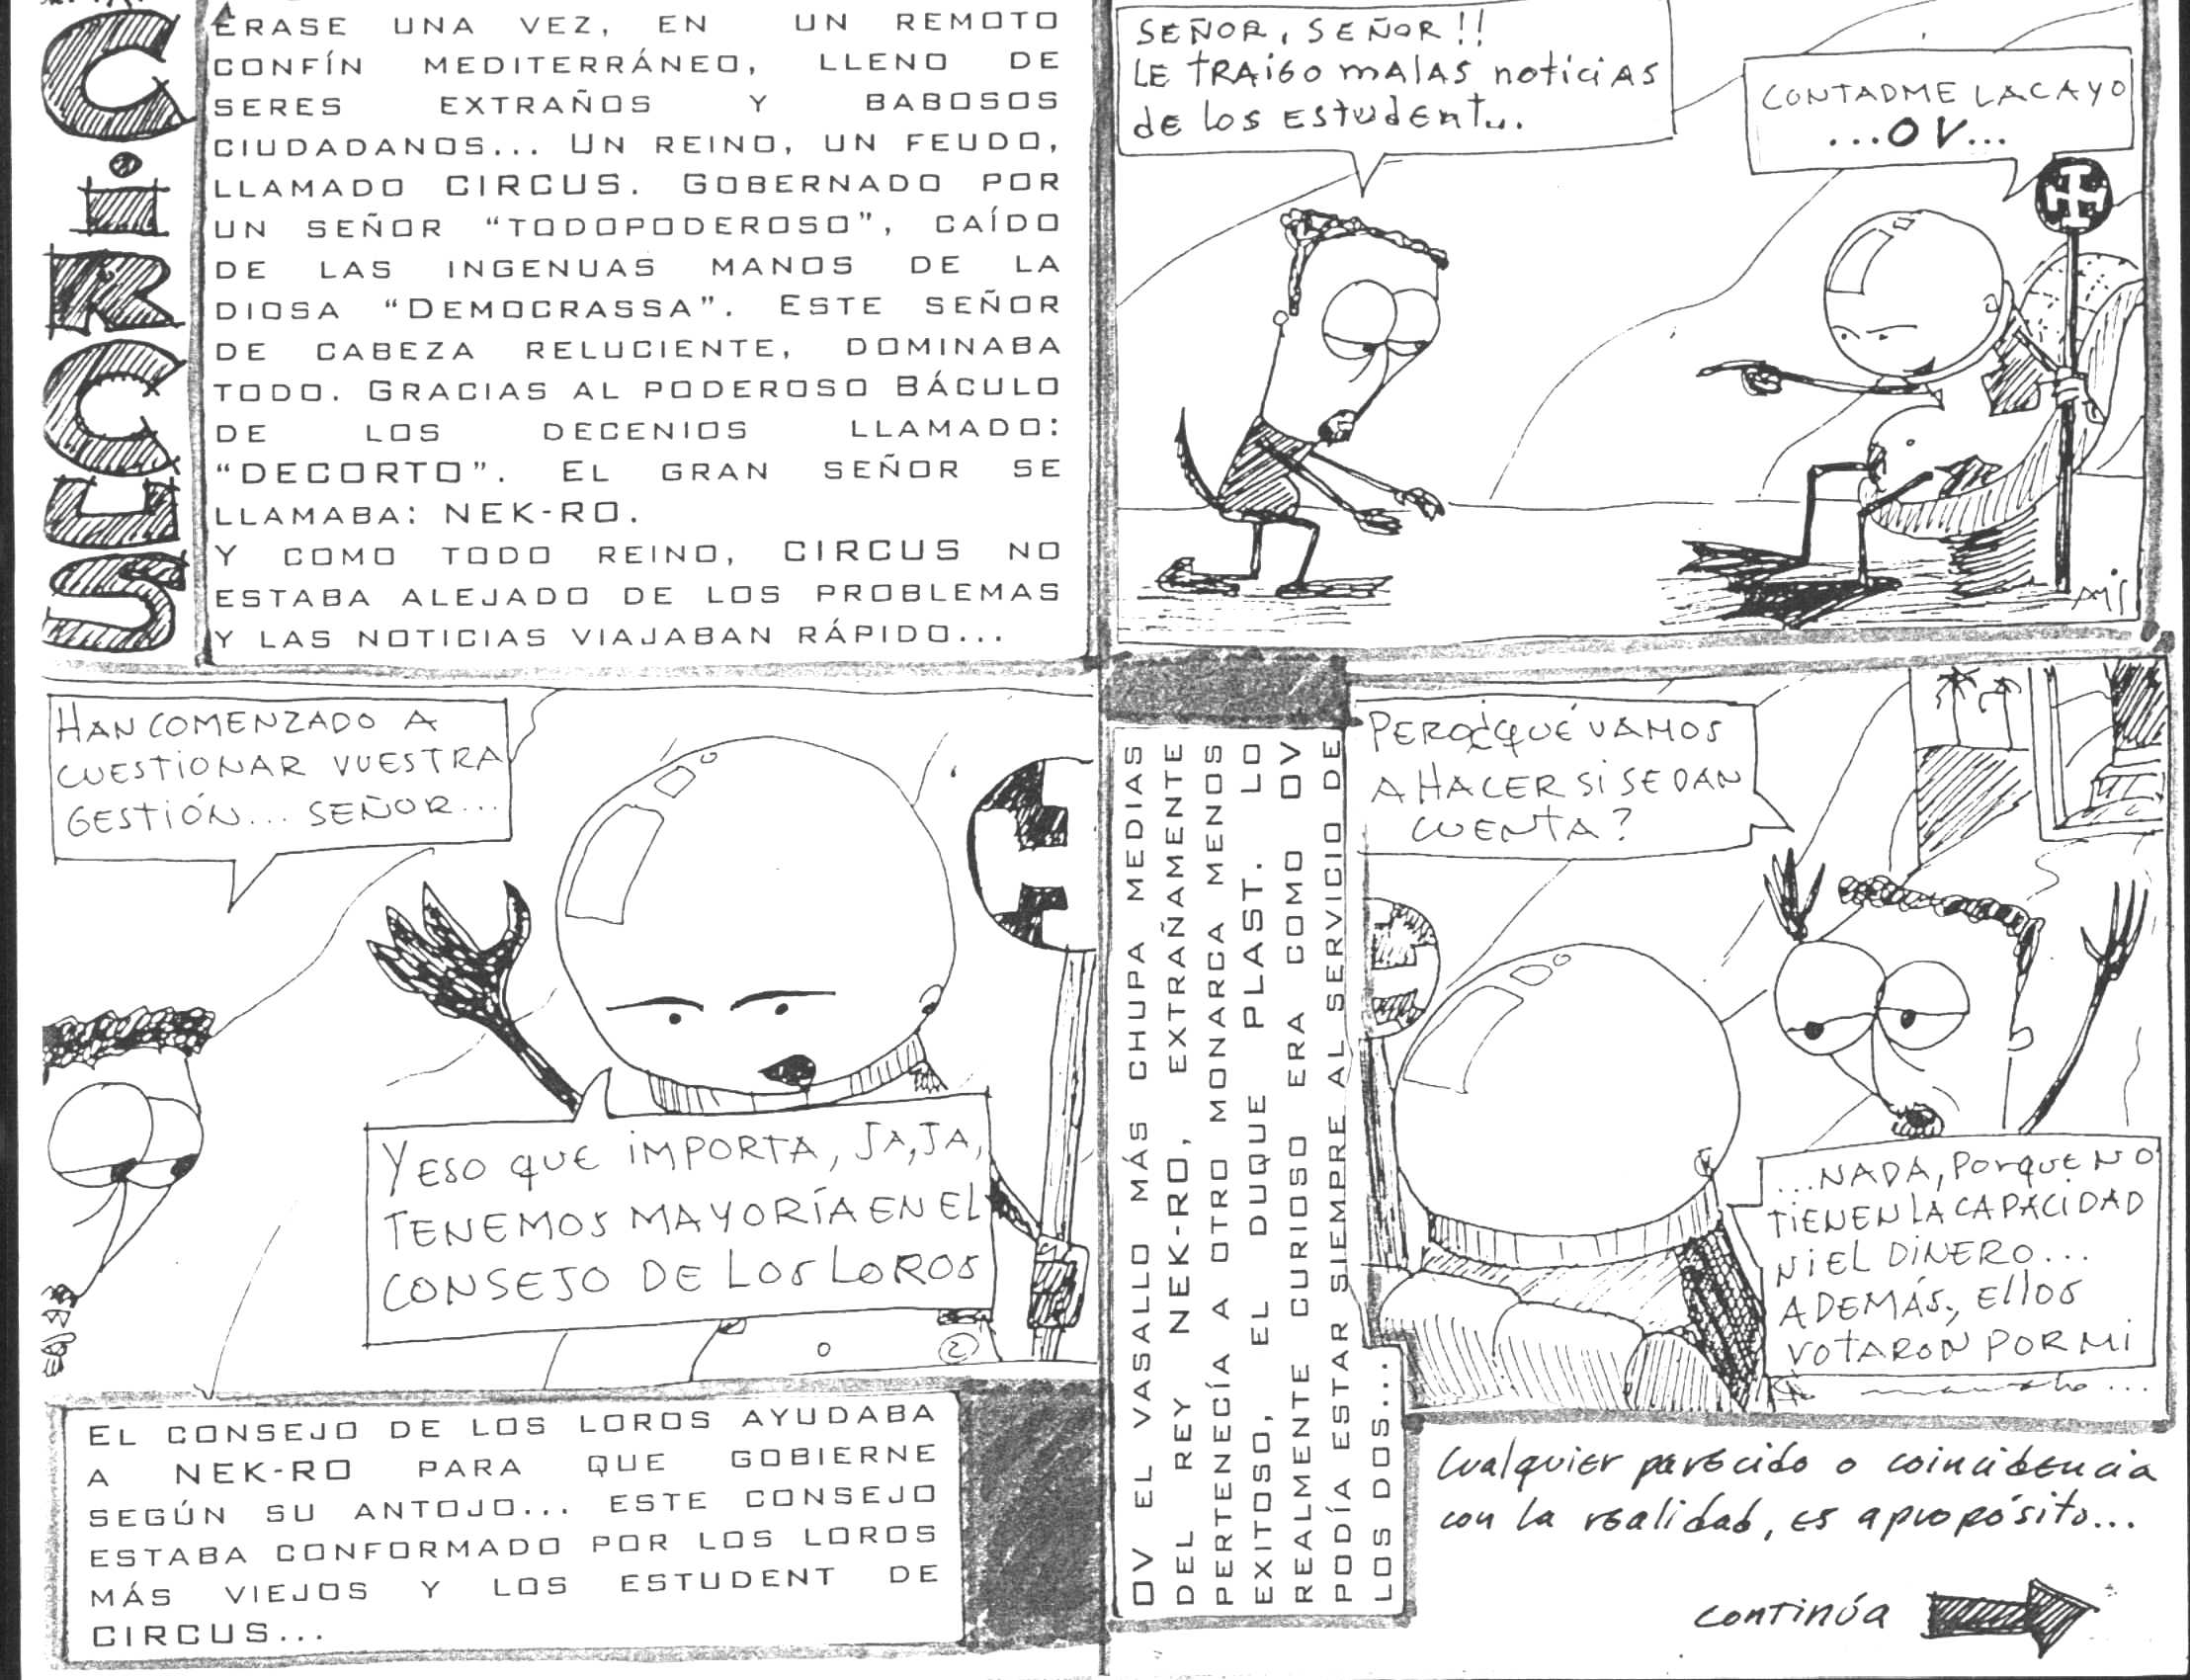 CiRCUS
ÉRASE UNA VEZ, EN UN REMOTO
CONFÍN MEDITERRÁNEO, LLENO DE
SERES EXTRAÑOS Y BABOSOS
CIUDADANOS... UN REINO, UN FEUDO,
LLAMADO CIRCUS. GOBERNADO POR
UN SEÑOR "TODOPODEROSO", CAÍDO
DE LAS INGENUAS MANOS DE LA
DIOSA "DEMOCRASSA". ESTE SEÑOR
DE CABEZA RELUCIENTE, DOMINABA
TODO. GRACIAS AL PODEROSO BÁCULO
DE LOS DECENIOS LLAMADO:
"DECORTO". EL GRAN SEÑOR SE
LLAMABA: NEK-RO.
Y COMO TODO REINO, CIRCUS NO
ESTABA ALEJADO DE LOS PROBLEMAS
Y LAS NOTICIAS VIAJABAN RÁPIDO...
SEÑOR, SEÑOR!!
LE TRAIGO MALAS NOTICIAS
DE LOS ESTUDENT...
CONTADME LACAYO
...OV...
AMIS
HAN COMENZADO A
CUESTIONAR VUESTRA
GESTIÓN... SEÑOR...
Y ESO QUE IMPORTA, JA, JA,
TENEMOS MAYORÍA EN EL
CONSEJO DE LOS LOROS
2
EL CONSEJO DE LOS LOROS AYUDABA
A NEK-RO PARA QUE GOBIERNE
SEGÚN SU ANTOJO... ESTE CONSEJO
ESTABA CONFORMADO POR LOS LOROS
MÁS VIEJOS Y LOS ESTUDENT DE
CIRCUS...
OV EL VASALLO MÁS CHUPA MEDIAS
DEL REY NEK-RO, EXTRAÑAMENTE
PERTENECÍA A OTRO MONARCA MENOS
EXITOSO, EL DUQUE PLAST. LO
REALMENTE CURIOSO ERA COMO OV
PODÍA ESTAR SIEMPRE AL SERVICIO DE
LOS DOS...
PERO ¿QUÉ VAMOS
A HACER SI SE DAN
CUENTA?
...NADA, PORQUE NO
TIENEN LA CAPACIDAD
NI EL DINERO...
ADEMÁS, ELLOS
VOTARON POR MI
Cualquier parecido o coincidencia
con la realidad, es apropósito...
continúa